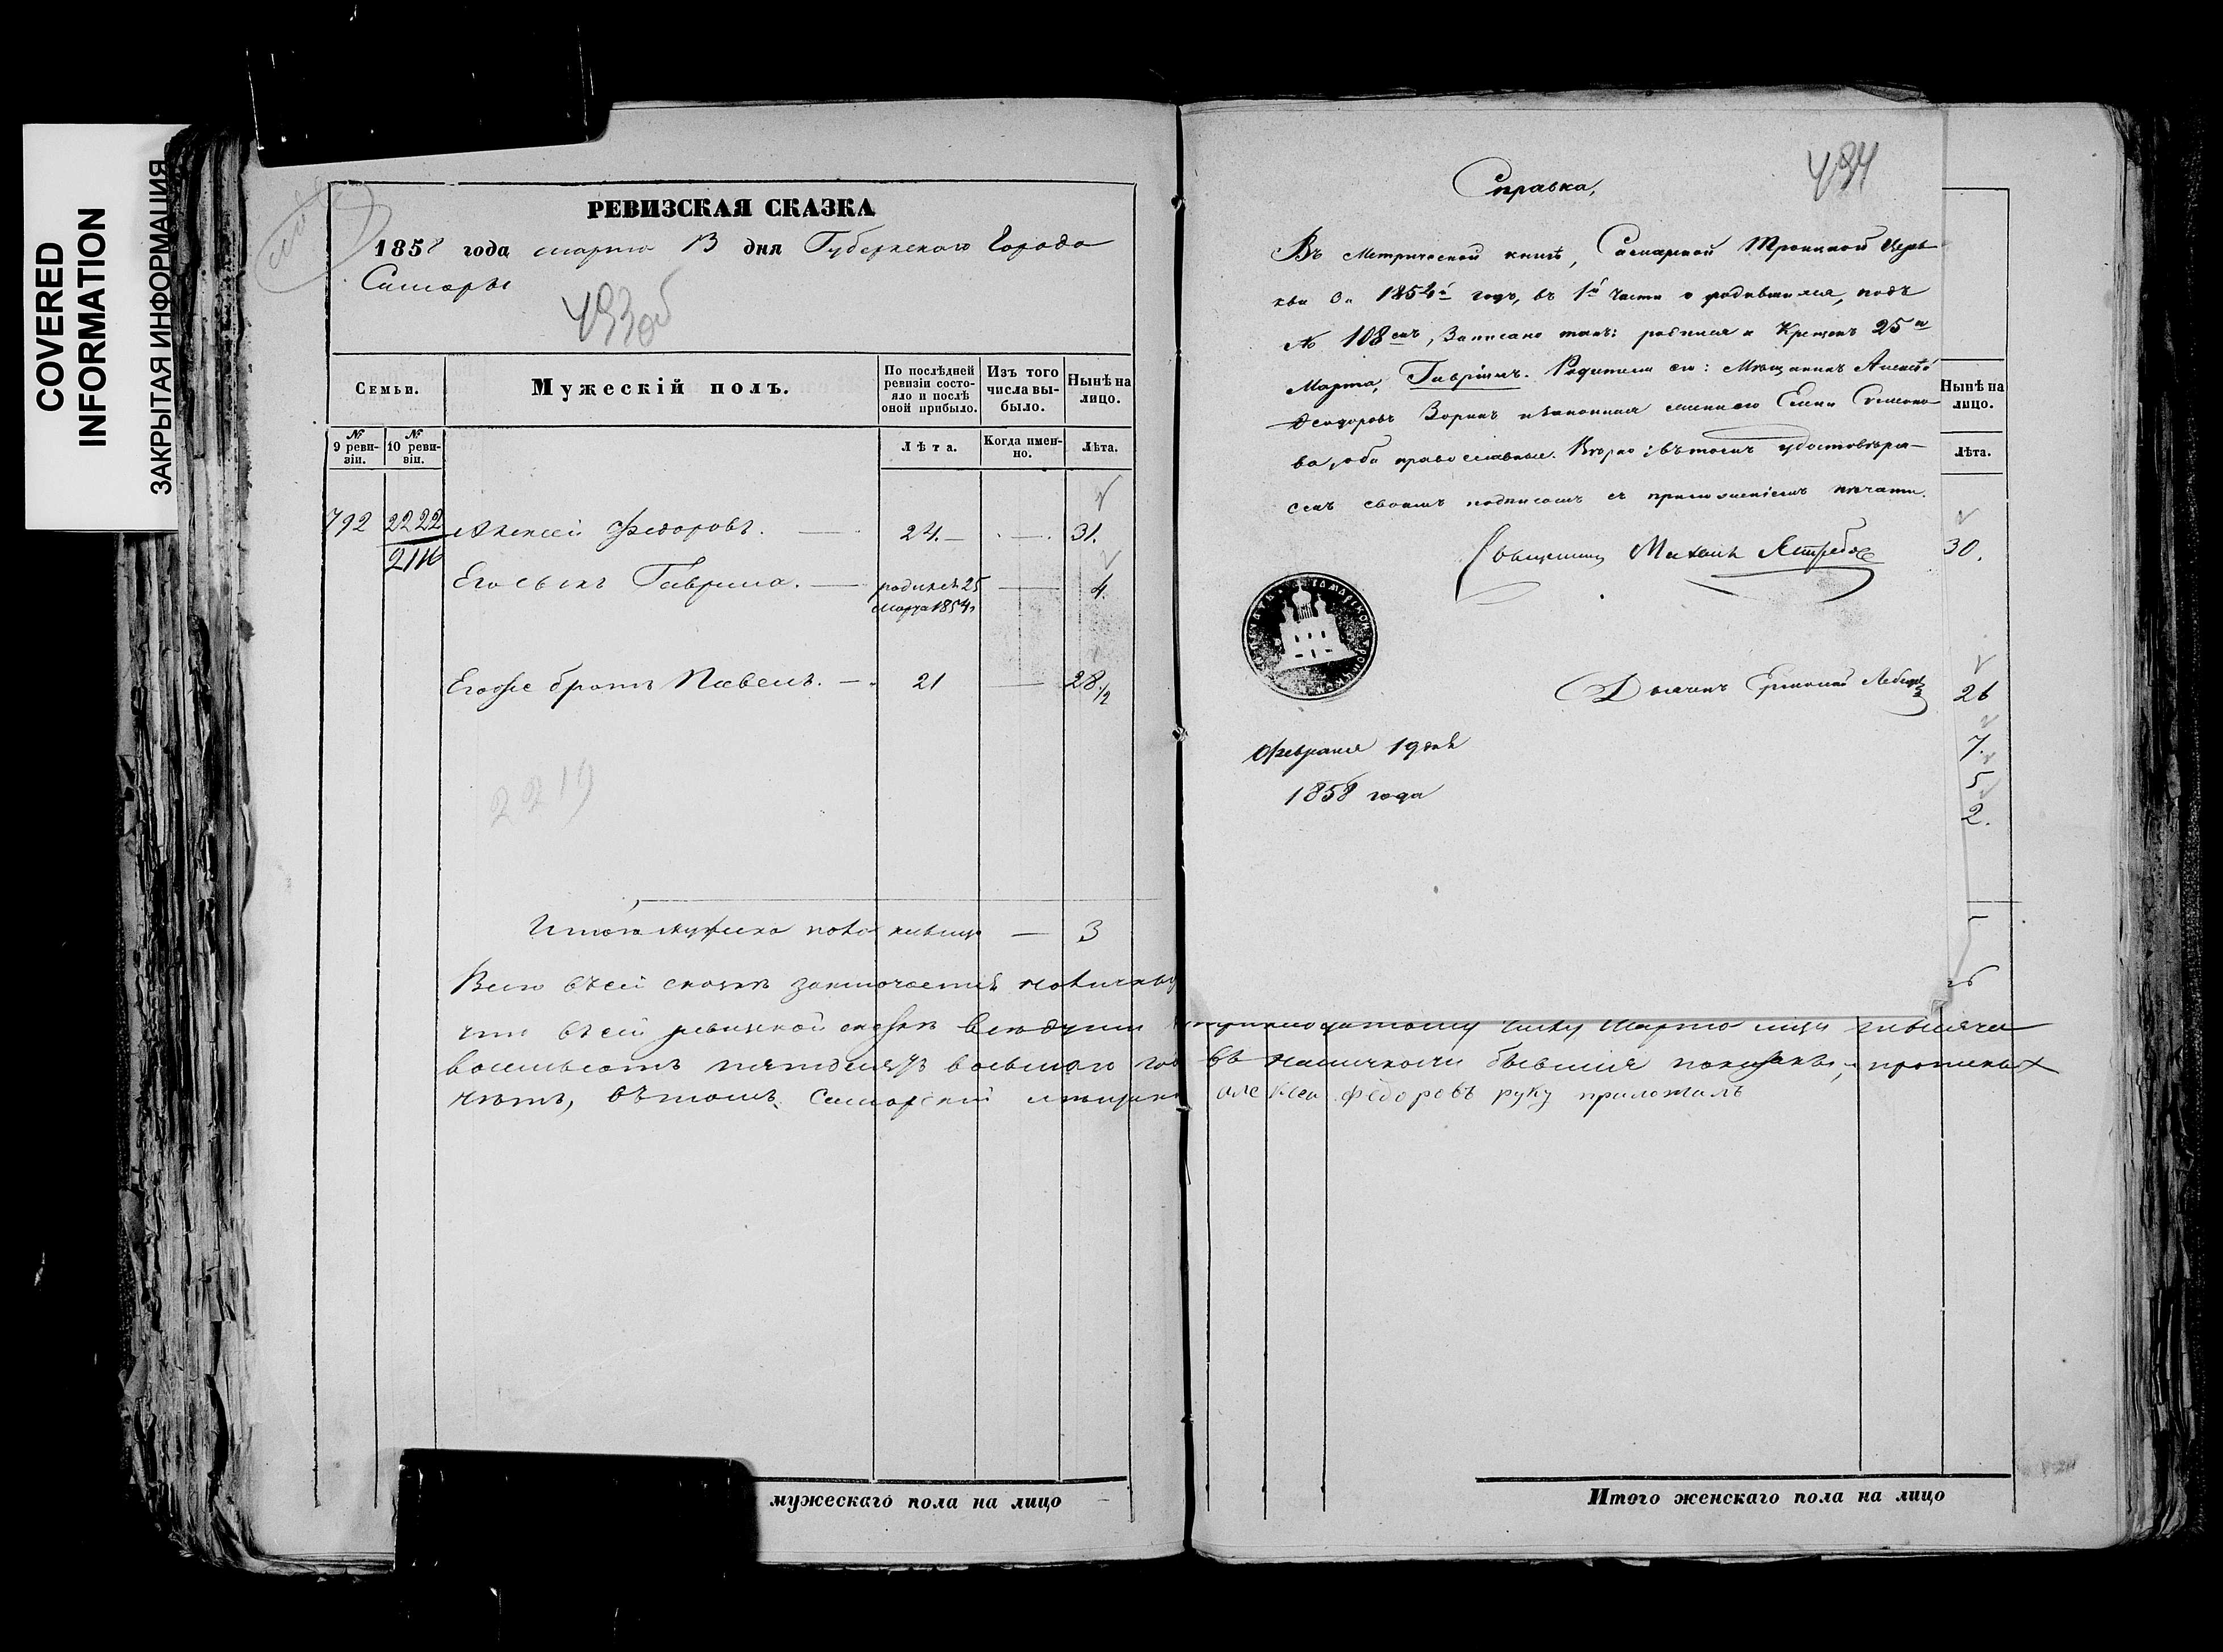 COVERED
INFORMATION
ЗАКРЫТАЯ ИНФОРМАЦИЯ
РЕВИЗСКАЯ СКАЗКА
1858 года марта 13 дня Губернского Города
Самары
493об
Семьи.
Мужескій полъ.
По послѣдней ревизіи состояло и послѣ оной прибыло.
Изъ того числа выбыло.
Нынѣ на лицо.
№ 9 ревизіи.
№ 10 ревизіи.
Лѣта.
Когда именно.
Лѣта.
792 2222 Алексей Федоровъ. 24. 31.
Его сынъ Гаврила. родился 25 марта 1854 4.
Его же братъ Павелъ. 21 28 1/2
2219
Итого мужска пола налицо 3
Всего въ сей сказкѣ заключается
что въ сей ревизской сказкѣ все души тысяча
восемьсотъ пятьдесятъ восьмого въ наличности бывшія показаны, и прописныхъ
нѣтъ, въ томъ Самарский мещанин Алексеи Федоровъ руку приложилъ
494
Справка,
Въ Метрической книгѣ, Самарской Троицкой Церк-
кви за 1854й годъ, въ 1й части о родившихся, подъ
№ 108емъ, Записано такъ: родился и Крещенъ 25го
Марта, Гавріилъ. Родители его: Мѣщанинъ Алексѣй
Феодоровъ Зоринъ и законная жена его Елена Симеоно-
ва, оба православные. Вѣрно; въ томъ удостовѣря-
емъ своимъ подписомъ съ приложеніемъ печати.
Священникъ Михаилъ Ястребовъ
Дьячекъ
Февраля 19 дня
1858 года
Нынѣ на лицо.
Лѣта.
30.
26
7.
5
2.
5
мужескаго пола на лицо
Итого женскаго пола на лицо